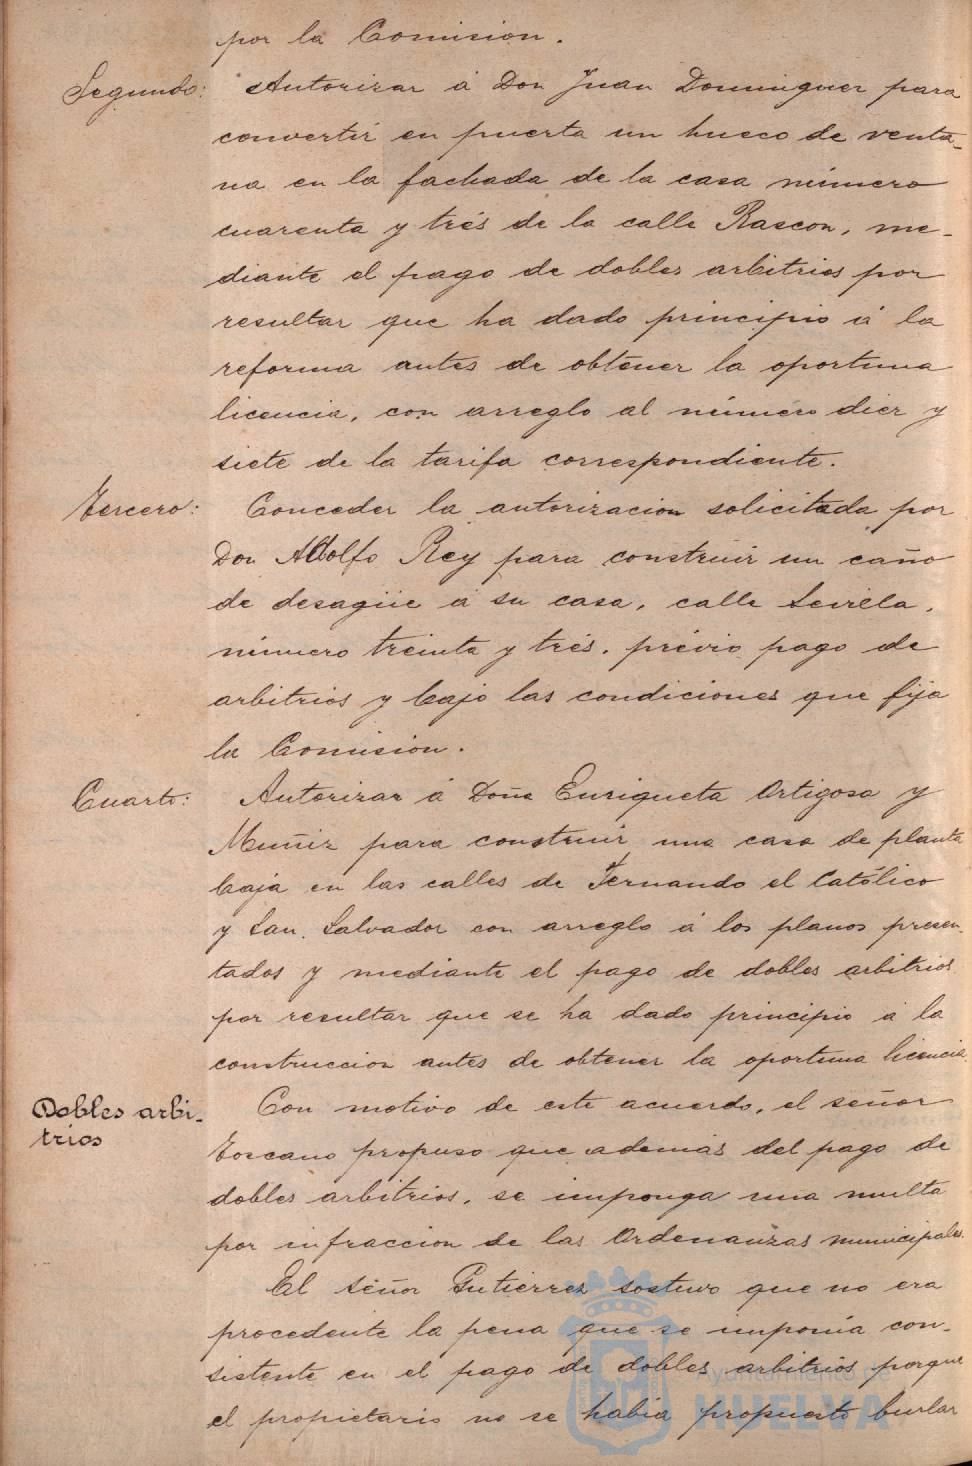 por la Comision.
Segundo: Autorizar á Don Juan Dominguez para
convertir en puerta un hueco de venta-
na en la fachada de la casa número
cuarenta y trés de la calle Rascon, me-
diante el pago de dobles arbitrios por
resultar que ha dado principio á la
reforma antes de obtener la oportuna
licencia, con arreglo al número diez y
siete de la tarifa correspondiente.
Tercero: Conceder la autorizacion solicitada por
Don Adolfo Rey para construir un caño
de desagüe á su casa, calle Sevilla,
número treinta y trés, prévio pago de
arbitrios y bajo las condiciones que fija
la Comision.
Cuarto: Autorizar á Doña Enriqueta Ortigosa y
Muñiz para construir una casa de planta
baja en las calles de Fernando el Católico
y San Salvador con arreglo á los planos presen-
tados y mediante el pago de dobles arbitrios
por resultar que se ha dado principio á la
construccion antes de obtener la oportuna licencia.
Dobles arbi-
trios
Con motivo de este acuerdo, el señor
Toscano propuso que además del pago de
dobles arbitrios, se imponga una multa
por infraccion de las Ordenanzas municipales.
El señor Gutierrez sostuvo que no era
procedente la pena que se imponía con-
sistente en el pago de dobles arbitrios porque
el propietario no se había propuesto burlar
Ayuntamiento de
HUELVA